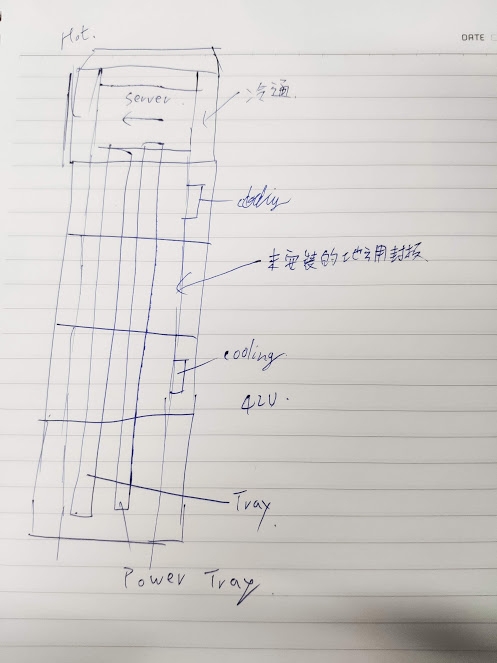 DATE
Hot.
server.
冷通
cooling
未安装的地方用封板.
cooling.
42U.
Tray.
Power Tray.